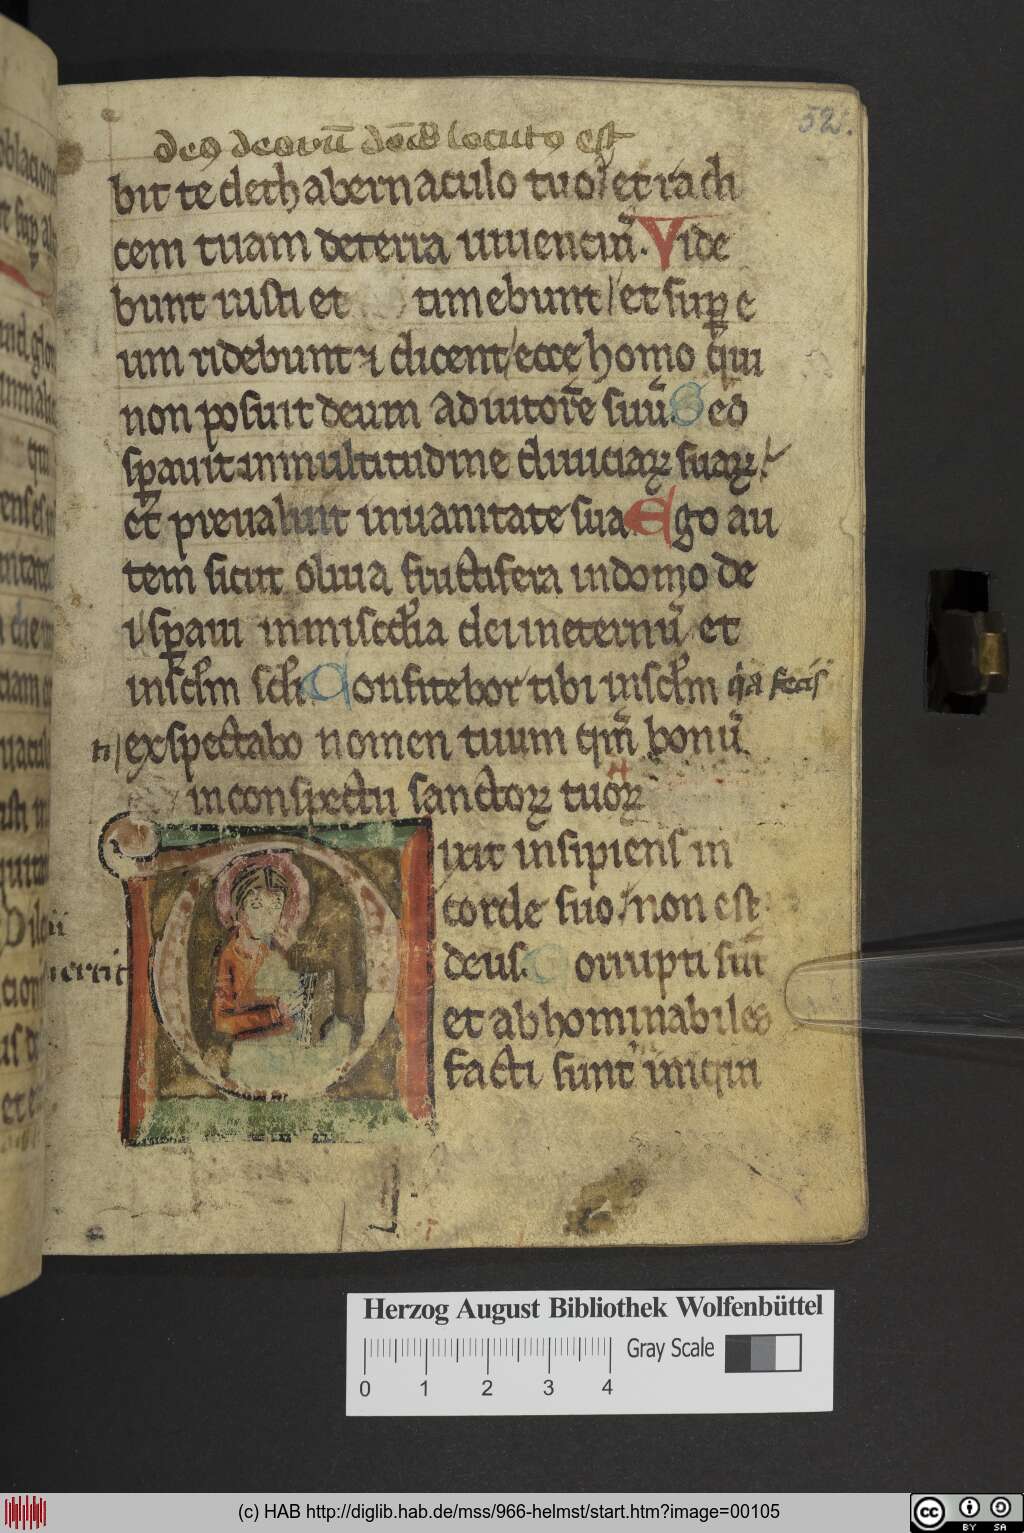 52.
deꝯ deorum dominus locutꝯ est
bit te de thabernaculo tuo et radi
cem tuam de terra uiuentiū. Vide
bunt iusti et timebunt / et sup e
um ridebunt ⁊ dicent / ecce homo qui
non posuit deum adiutorē suū Sed
sperauit in multitudine diuiciaꝝ suaꝝ
et preualuit in uanitate sua Ego au
tem sicut oliua fructifera in domo de
i speraui in misc̄dia dei in eternū et
in sc̄lm sc̄li. Confitebor tibi in sc̄lm q̄a fecisti
expectabo nomen tuum qm̄ bonū
in conspectu sanctoꝝ tuoꝝ
Dixit insipiens in
corde suo non est
deus. Corrupti sūt
et abhominabiles
facti sunt in iniqui
Herzog August Bibliothek Wolfenbüttel
Gray Scale
0 1 2 3 4
(c) HAB http://diglib.hab.de/mss/966-helmst/start.htm?image=00105
cc BY SA